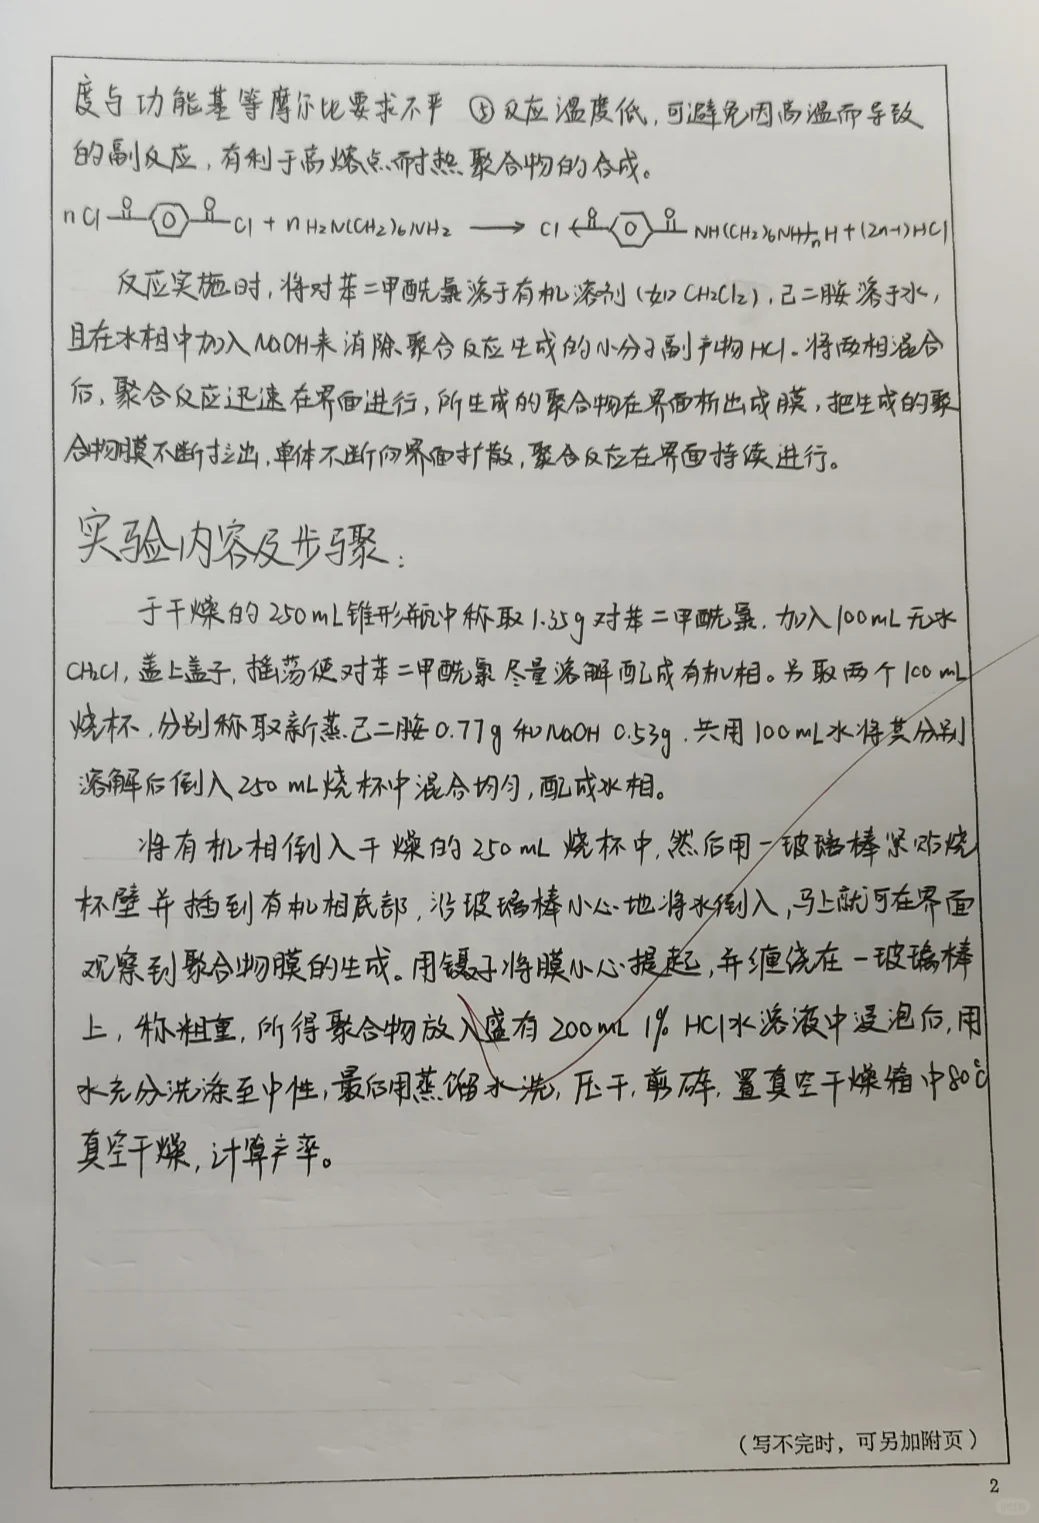 度与功能基等摩尔比要求不严 ⑤反应温度低,可避免因高温而导致
的副反应,有利于高熔点耐热聚合物的合成。
nCl-C(=O)-⌬-C(=O)-Cl + nH2N(CH2)6NH2 → Cl-[C(=O)-⌬-C(=O)-NH(CH2)6NH]n-H + (2n-1)HCl
反应实施时,将对苯二甲酰氯溶于有机溶剂(如CH2Cl2),己二胺溶于水,
且在水相中加入NaOH来消除聚合反应生成的小分子副产物HCl。将两相混合
后,聚合反应迅速在界面进行,所生成的聚合物在界面析出成膜,把生成的聚
合物膜不断拉出,单体不断向界面扩散,聚合反应在界面持续进行。
实验内容及步骤:
于干燥的250mL锥形瓶中称取1.35g对苯二甲酰氯,加入100mL无水
CH2Cl,盖上盖子,摇荡使对苯二甲酰氯尽量溶解配成有机相。另取两个100mL
烧杯,分别称取新蒸己二胺0.77g和NaOH 0.53g,共用100mL水将其分别
溶解后倒入250mL烧杯中混合均匀,配成水相。
将有机相倒入干燥的250mL烧杯中,然后用一玻璃棒紧贴烧
杯壁并插到有机相底部,沿玻璃棒小心地将水倒入,马上就可在界面
观察到聚合物膜的生成。用镊子将膜小心提起,并缠绕在一玻璃棒
上,称粗重,所得聚合物放入盛有200mL 1% HCl水溶液中浸泡后,用
水充分洗涤至中性,最后用蒸馏水洗,压干,剪碎,置真空干燥箱中80℃
真空干燥,计算产率。
(写不完时,可另加附页)
2